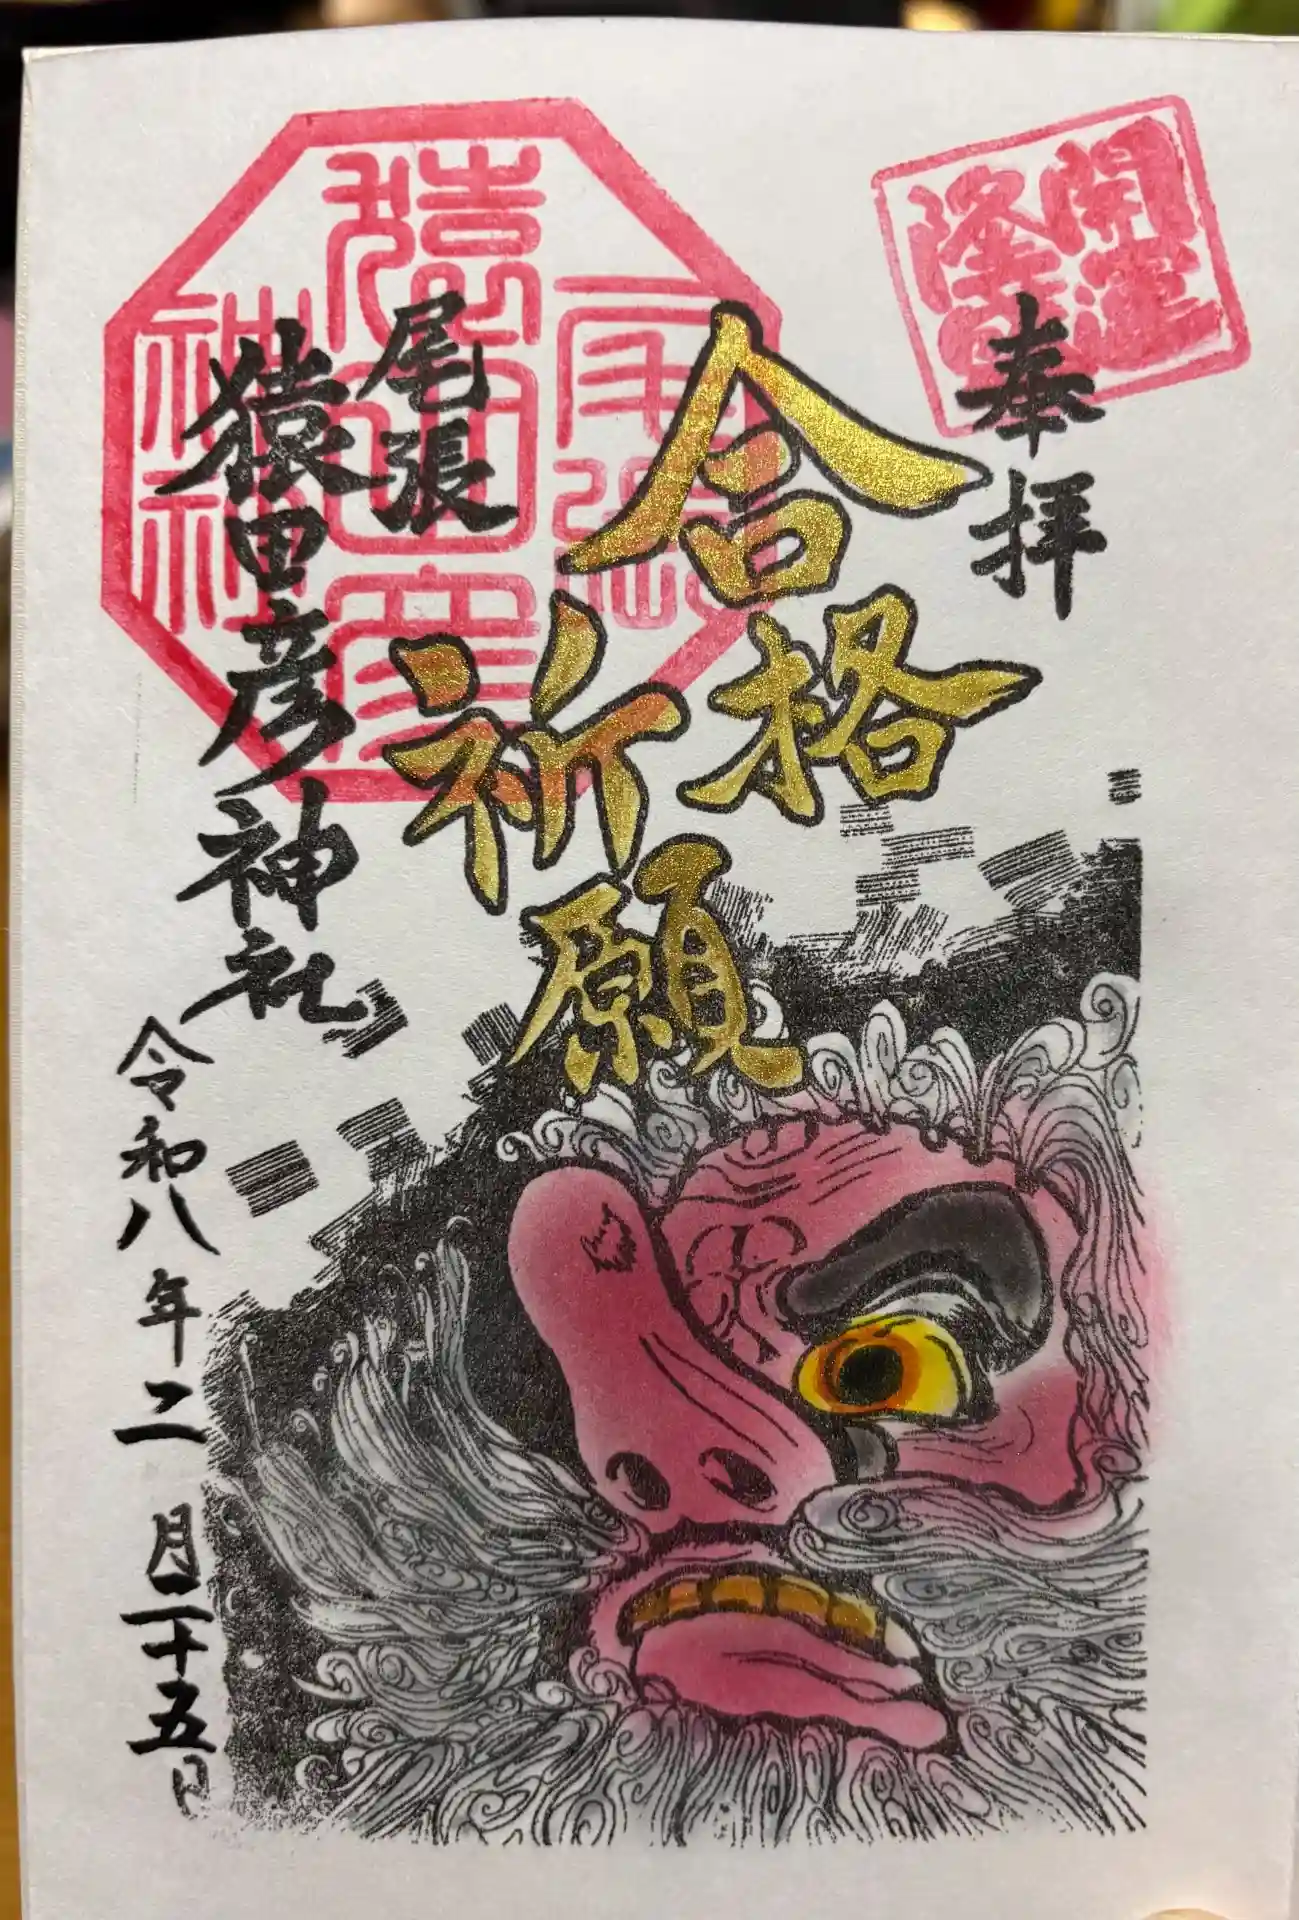 開運
隆昌
奉拝
合格
祈願
尾張
猿田彦
神社
尾張
猿田彦神社
令和八年二月二十五日